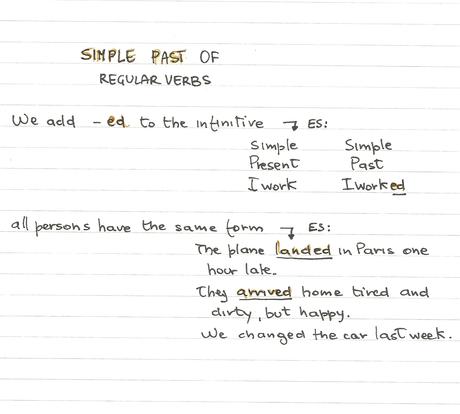 SIMPLE PAST OF
REGULAR VERBS
We add -ed to the infinitive → ES:
Simple Simple
Present Past
I work I worked
all persons have the same form → ES:
The plane landed in Paris one
hour late.
They arrived home tired and
dirty, but happy.
We changed the car last week.